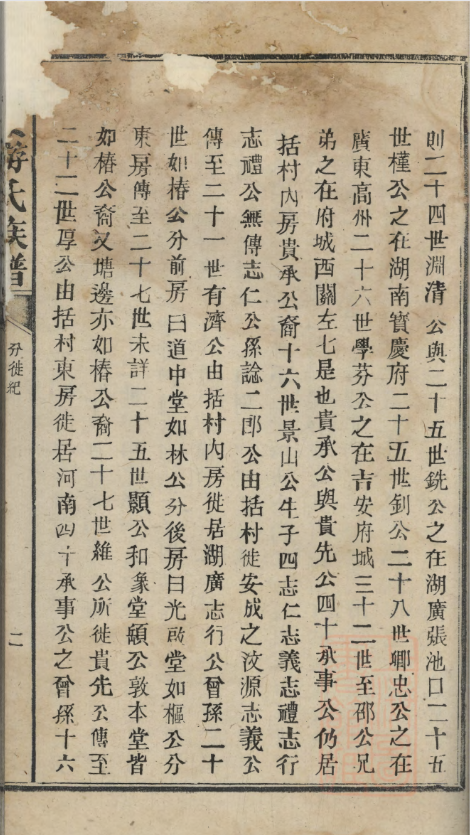 則二十四世淵清公與二十五世銑公之在湖廣張池口二十五
世槿公之在湖南寳慶府二十五世釗公二十八世卿忠公之在
廣東高州二十六世學芬公之在吉安府城三十二世至邵公兄
弟之在府城西關左七是也貴承公與貴先公四十承事公仍居
括村內房貴承公裔十六世景山公生子四志仁志義志禮志行
志禮公無傳志仁公孫論二郎公由括村徙安成之汶源志義公
傳至二十一世有濟公由括村內房徙居湖廣志行公曾孫二十
世如椿公分前房曰道中堂如林公分後房曰光啟堂如樞公分
東房傳至二十七世未詳二十五世顯公和彖堂頤公敦本堂皆
如椿公裔又塘邊亦如椿公裔二十七世維公所徙貴先公傳至
二十二世厚公由括村東房徙居河南四十承事公之曾孫十六
游氏族譜
分徙紀
二